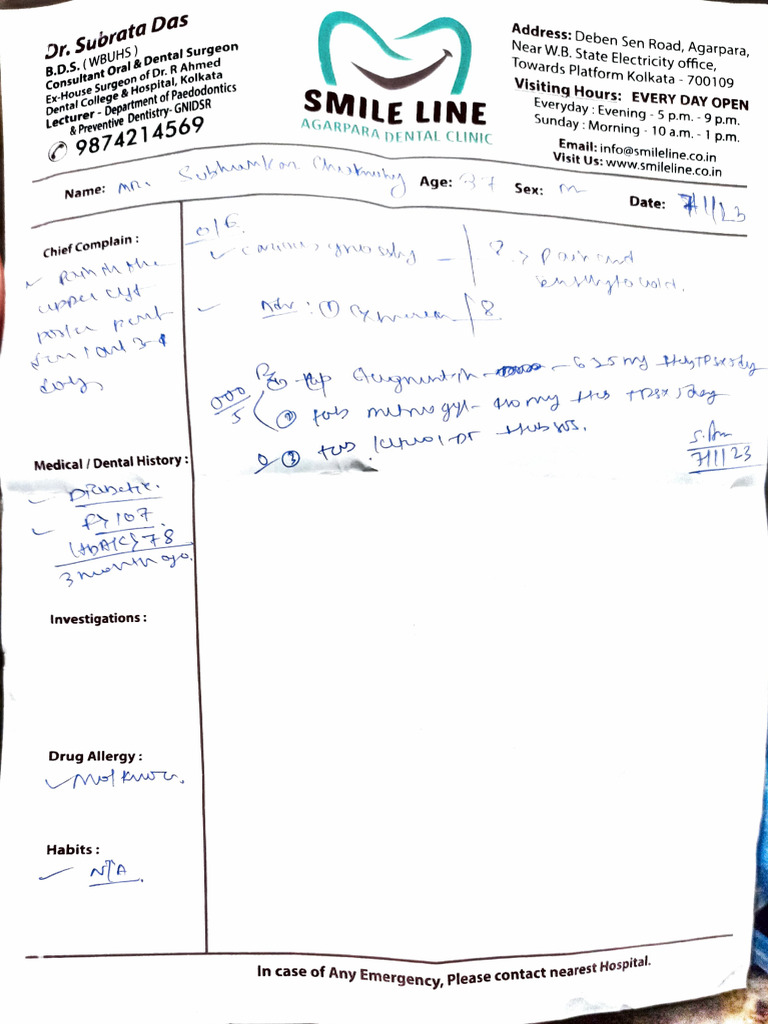 Dr. Subrata Das
B.D.S. ( WBUHS )
Consultant Oral & Dental Surgeon
Ex-House Surgeon of Dr. R Ahmed
Dental College & Hospital, Kolkata
Lecturer - Department of Paedodontics
& Preventive Dentistry- GNIDSR
9874214569
SMILE LINE
AGARPARA DENTAL CLINIC
Address: Deben Sen Road, Agarpara,
Near W.B. State Electricity office,
Towards Platform Kolkata - 700109
Visiting Hours: EVERY DAY OPEN
Everyday : Evening - 5 p.m. - 9 p.m.
Sunday : Morning - 10 a.m. - 1 p.m.
Email: info@smileline.co.in
Visit Us: www.smileline.co.in
Name: Mr. Age: 37 Sex: m Date: 7/1/23
Chief Complain :
Pain in the
upper
3-4
days
O/E.
pain and
Adv : ①
8
Rx ① Augmentin 625 mg
② tab metrogyl
③ tab ketorol DT sos.
7/1/23
Medical / Dental History :
Diabetic.
F > 107
HbA1C > 7.8
3 month ago.
Investigations :
Drug Allergy :
Not known.
Habits :
N/A
In case of Any Emergency, Please contact nearest Hospital.